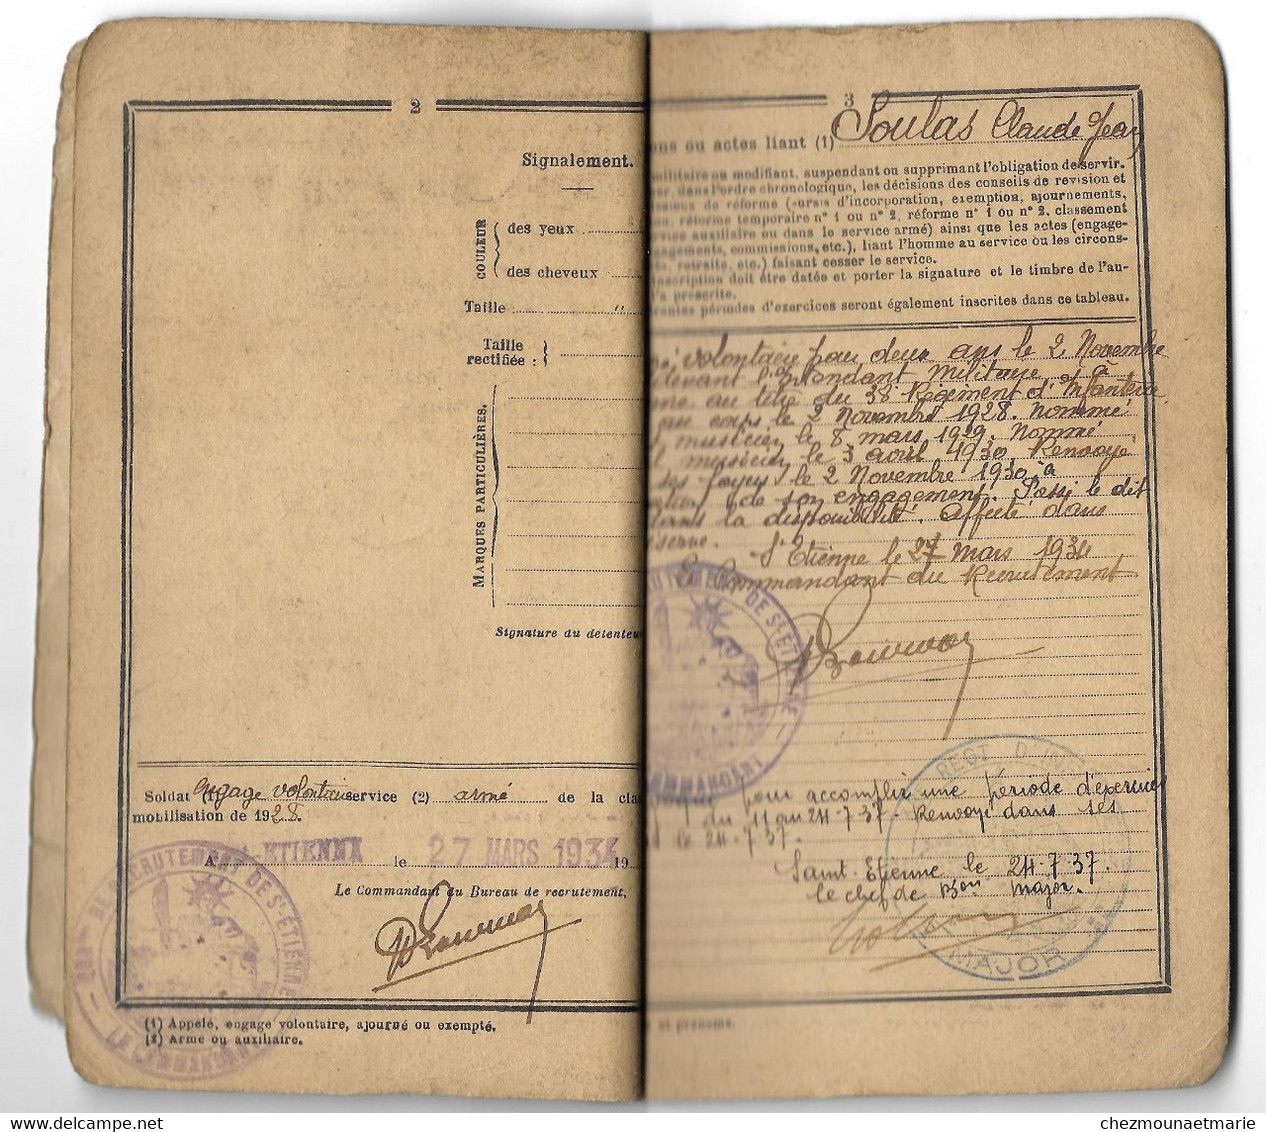 2
Signalement.
COULEUR
des yeux
des cheveux
Taille
Taille
rectifiée :
MARQUES PARTICULIÈRES.
Signature du détenteu
Soldat (1) engagé volontaire service (2) armé de la cla
mobilisation de 1928.
A ETIENNE le 27 MARS 1934 19
Le Commandant du Bureau de recrutement,
DE RECRUTEMENT DE St ETIENNE
LE COMMANDANT
(1) Appelé, engagé volontaire, ajourné ou exempté.
(2) Armé ou auxiliaire.
3
ons ou actes liant (1) Soulas Claude Jean
militaire ou modifiant, suspendant ou supprimant l'obligation de servir.
er, dans l'ordre chronologique, les décisions des conseils de revision et
ssions de réforme (sursis d'incorporation, exemption, ajournements,
on, réforme temporaire n° 1 ou n° 2, réforme n° 1 ou n° 2, classement
rvice auxiliaire ou dans le service armé) ainsi que les actes (engage-
gagements, commissions, etc.), liant l'homme au service ou les circons-
s, retraite, etc.) faisant cesser le service.
scription doit être datée et porter la signature et le timbre de l'au-
l'a prescrite.
rentes périodes d'exercices seront également inscrites dans ce tableau.
volontaire pour deux ans le 2 Novembre
devant l'Intendant Militaire à
au titre du 38e Régiment d'Infanterie
au corps le 2 Novembre 1928. Nommé
musicien le 8 mars 1929. Nommé
musicien le 3 avril 1930. Renvoyé
ses foyers le 2 Novembre 1930 à
de son engagement. Passé le dit
dans la disponibilité. Affecté dans
réserve.
St Etienne le 27 Mars 1934
Le Commandant du Recrutement
RECRUTEMENT DE St ETIENNE
COMMANDANT
pour accomplir une période d'exercices
du 11 au 24-7-37. Renvoyé dans ses
le 24-7-37.
Saint-Etienne le 24-7-37.
le chef de Bon Major.
REGT D'INF
MAJOR
et prénoms.
chezmounaetmarie